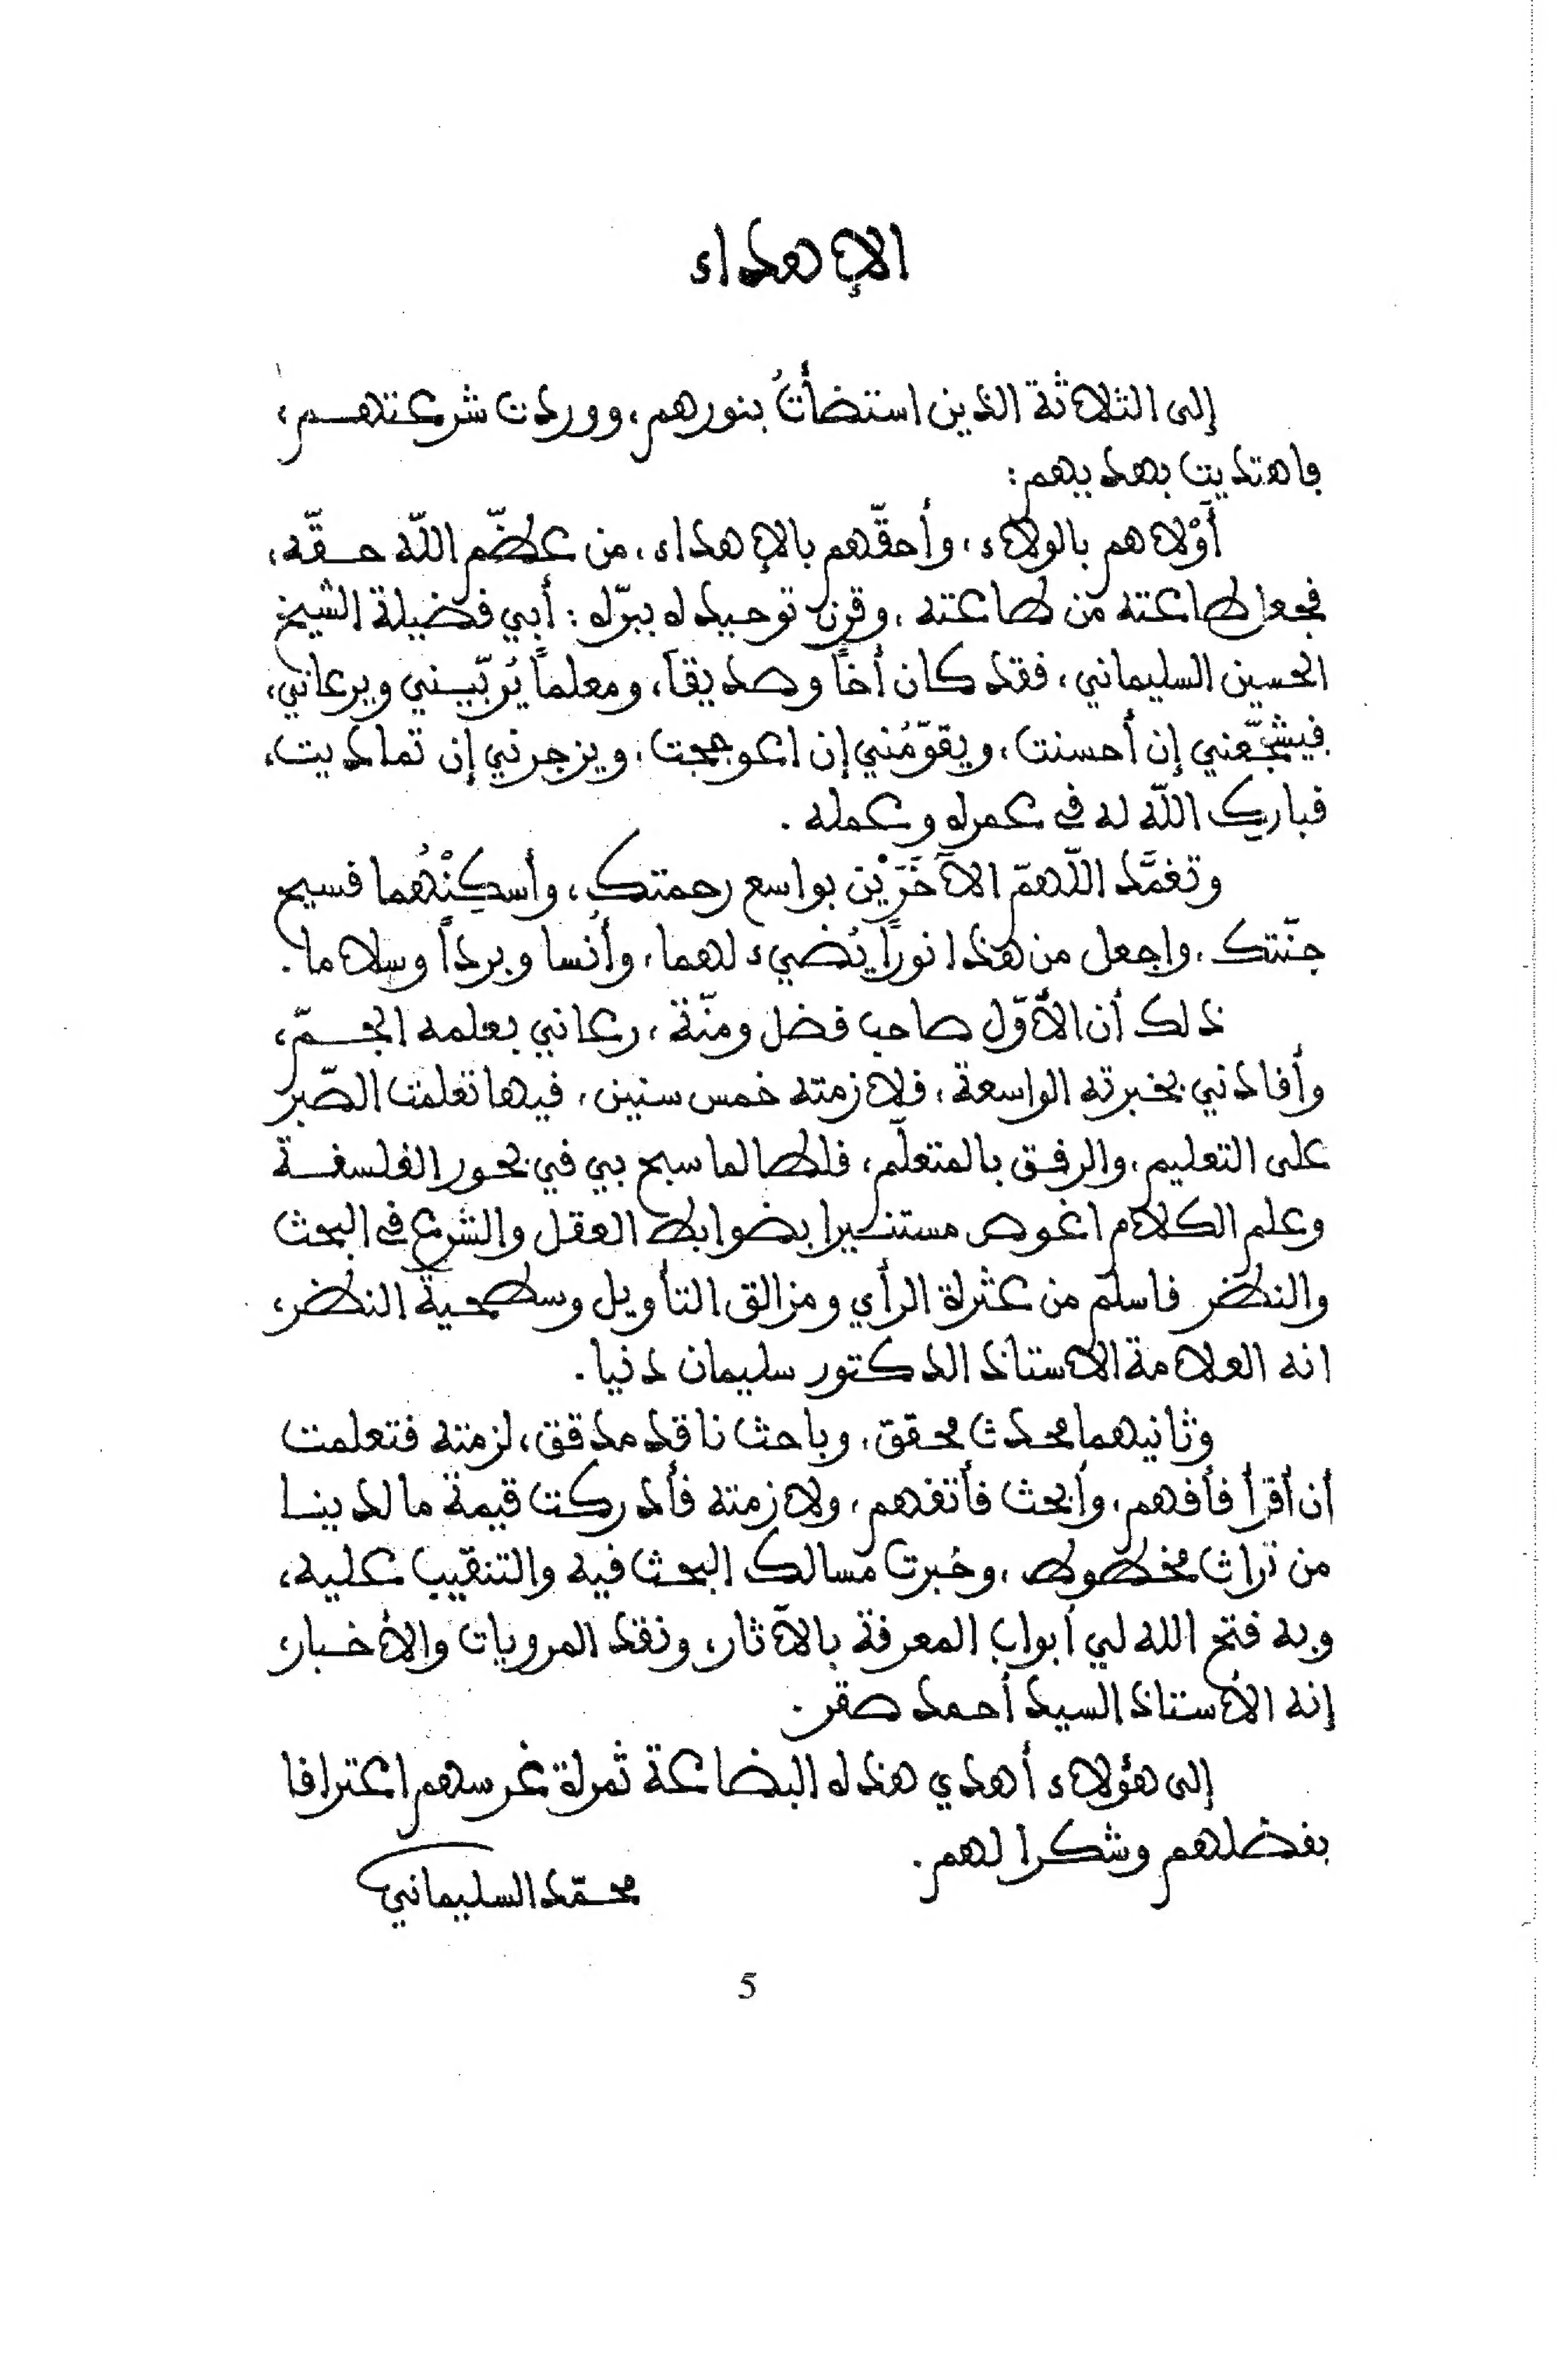 الإهداء
إلى الثلاثة الذين استضأتُ بنورهم، ووردت شرعتهم،
فاهتديت بهديهم:
أَوْلاهم بالولاء، وأحقّهم بالإهداء، من عظّم اللّه حقّه،
فجعل طاعته من طاعته، وقرن توحيده ببرّه: أبي فضيلة الشيخ
الحسين السليماني، فقد كان أخاً وصديقاً، ومعلماً يُربّيني ويرعاني،
فيشجّعني إن أحسنت، ويقوّمُني إن اعوججت، ويزجرني إن تماديت،
فبارك اللّه له في عمره وعمله.
وتغمَّد اللّهمّ الآخَرَيْن بواسع رحمتك، وأسكِنْهُما فسيح
جنّتك، واجعل من هذا نوراً يُضيء لهما، وأُنسا وبرداً وسلاما.
ذلك أن الأوّل صاحب فضل ومنّة، رعاني بعلمه الجمّ،
وأفادني بخبرته الواسعة، فلازمته خمس سنين، فيها تعلمت الصّبر
على التعليم، والرفق بالمتعلّم، فلطالما سبح بي في بحور الفلسفة
وعلم الكلام اغوص مستنيرا بضوابط العقل والشرع في البحث
والنظر فاسلم من عثرة الرأي ومزالق التأويل وسطحية النظر،
انه العلامة الاستاذ الدكتور سليمان دنيا.
وثانيهما محدث محقق، وباحث ناقد مدقق، لزمته فتعلمت
أن أقرأ فأفهم، وأبحث فأتفهم، ولازمته فأدركت قيمة ما لدينا
من تراث مخطوط، وخبرت مسالك البحث فيه والتنقيب عليه،
وبه فتح الله لي أبواب المعرفة بالآثار، ونقد المرويات والأخبار،
إنه الأستاذ السيد أحمد صقر.
إلى هؤلاء أهدي هذه البضاعة ثمرة غرسهم اعترافا
بفضلهم وشكرا لهم.
محمّد السليماني
5